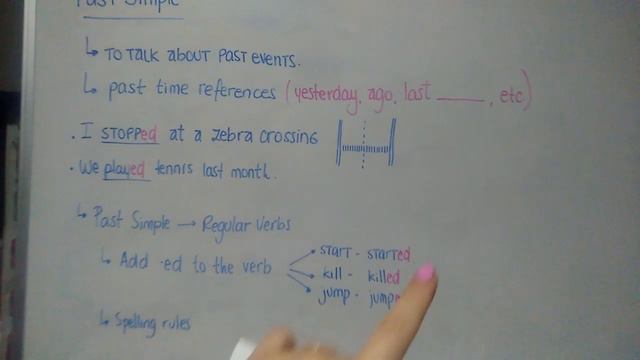 Past Simple
↳ TO TALK about PAST EVENTS.
↳ past time references (yesterday, ago, last ______, etc)
• I STOPPed at a zebra crossing
• We played tennis last month.
↳ Past Simple → Regular Verbs
↳ Add -ed to the verb
start - started
kill - killed
jump - jumpe
↳ Spelling rules